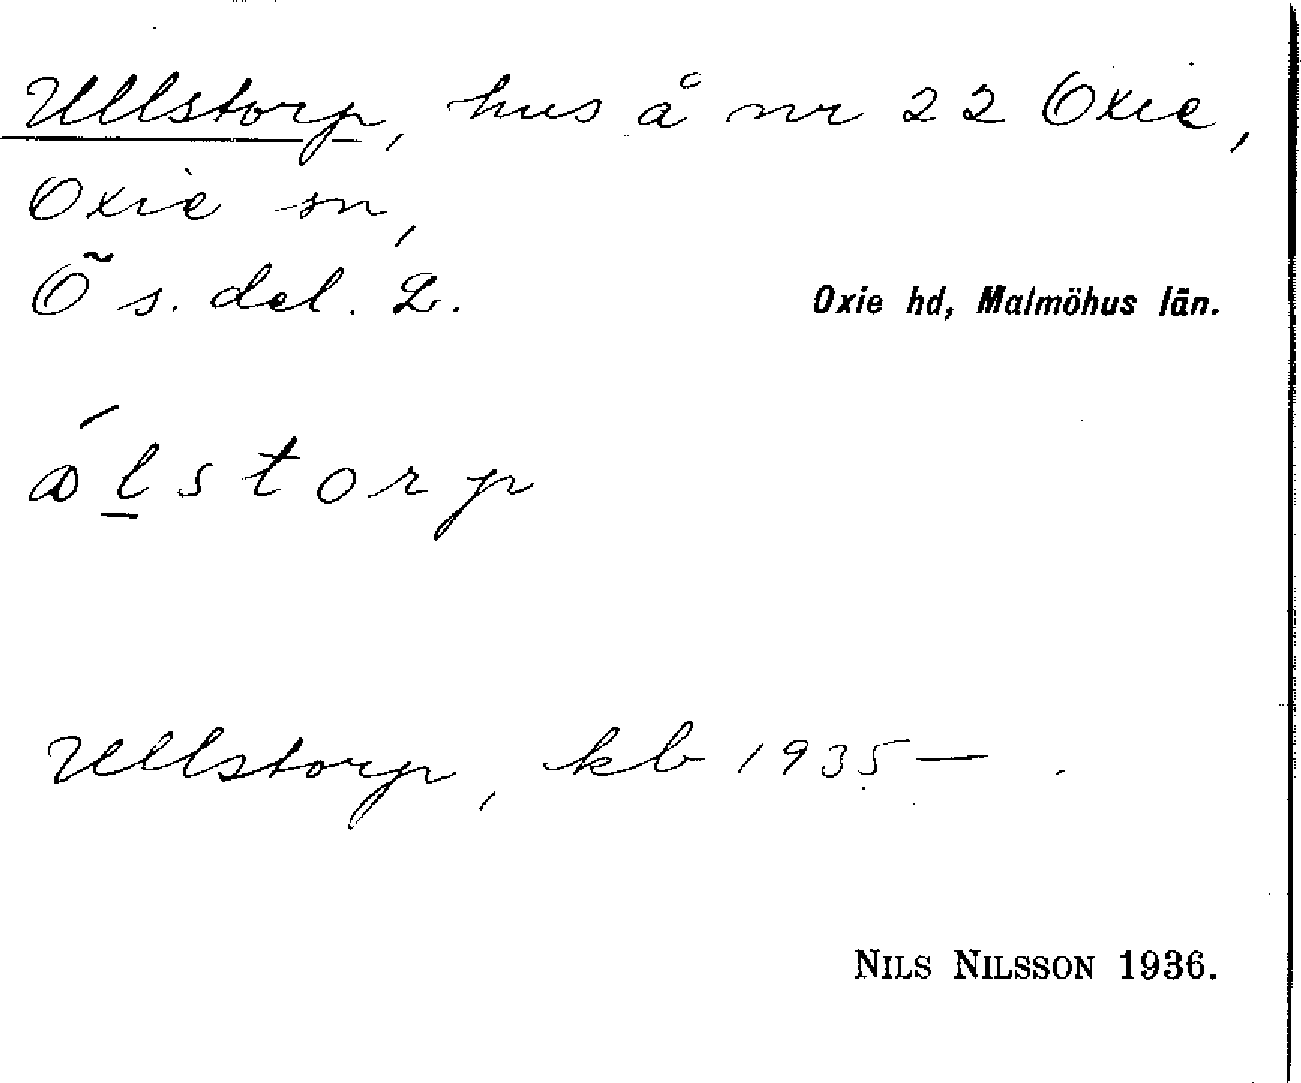 Ullstorp, hus å nr 22 Oxie,
Oxie sn,
Ö s. del. 2.
Oxie hd, Malmöhus län.
álstorp
Ullstorp, kb 1935 — .
NILS NILSSON 1936.